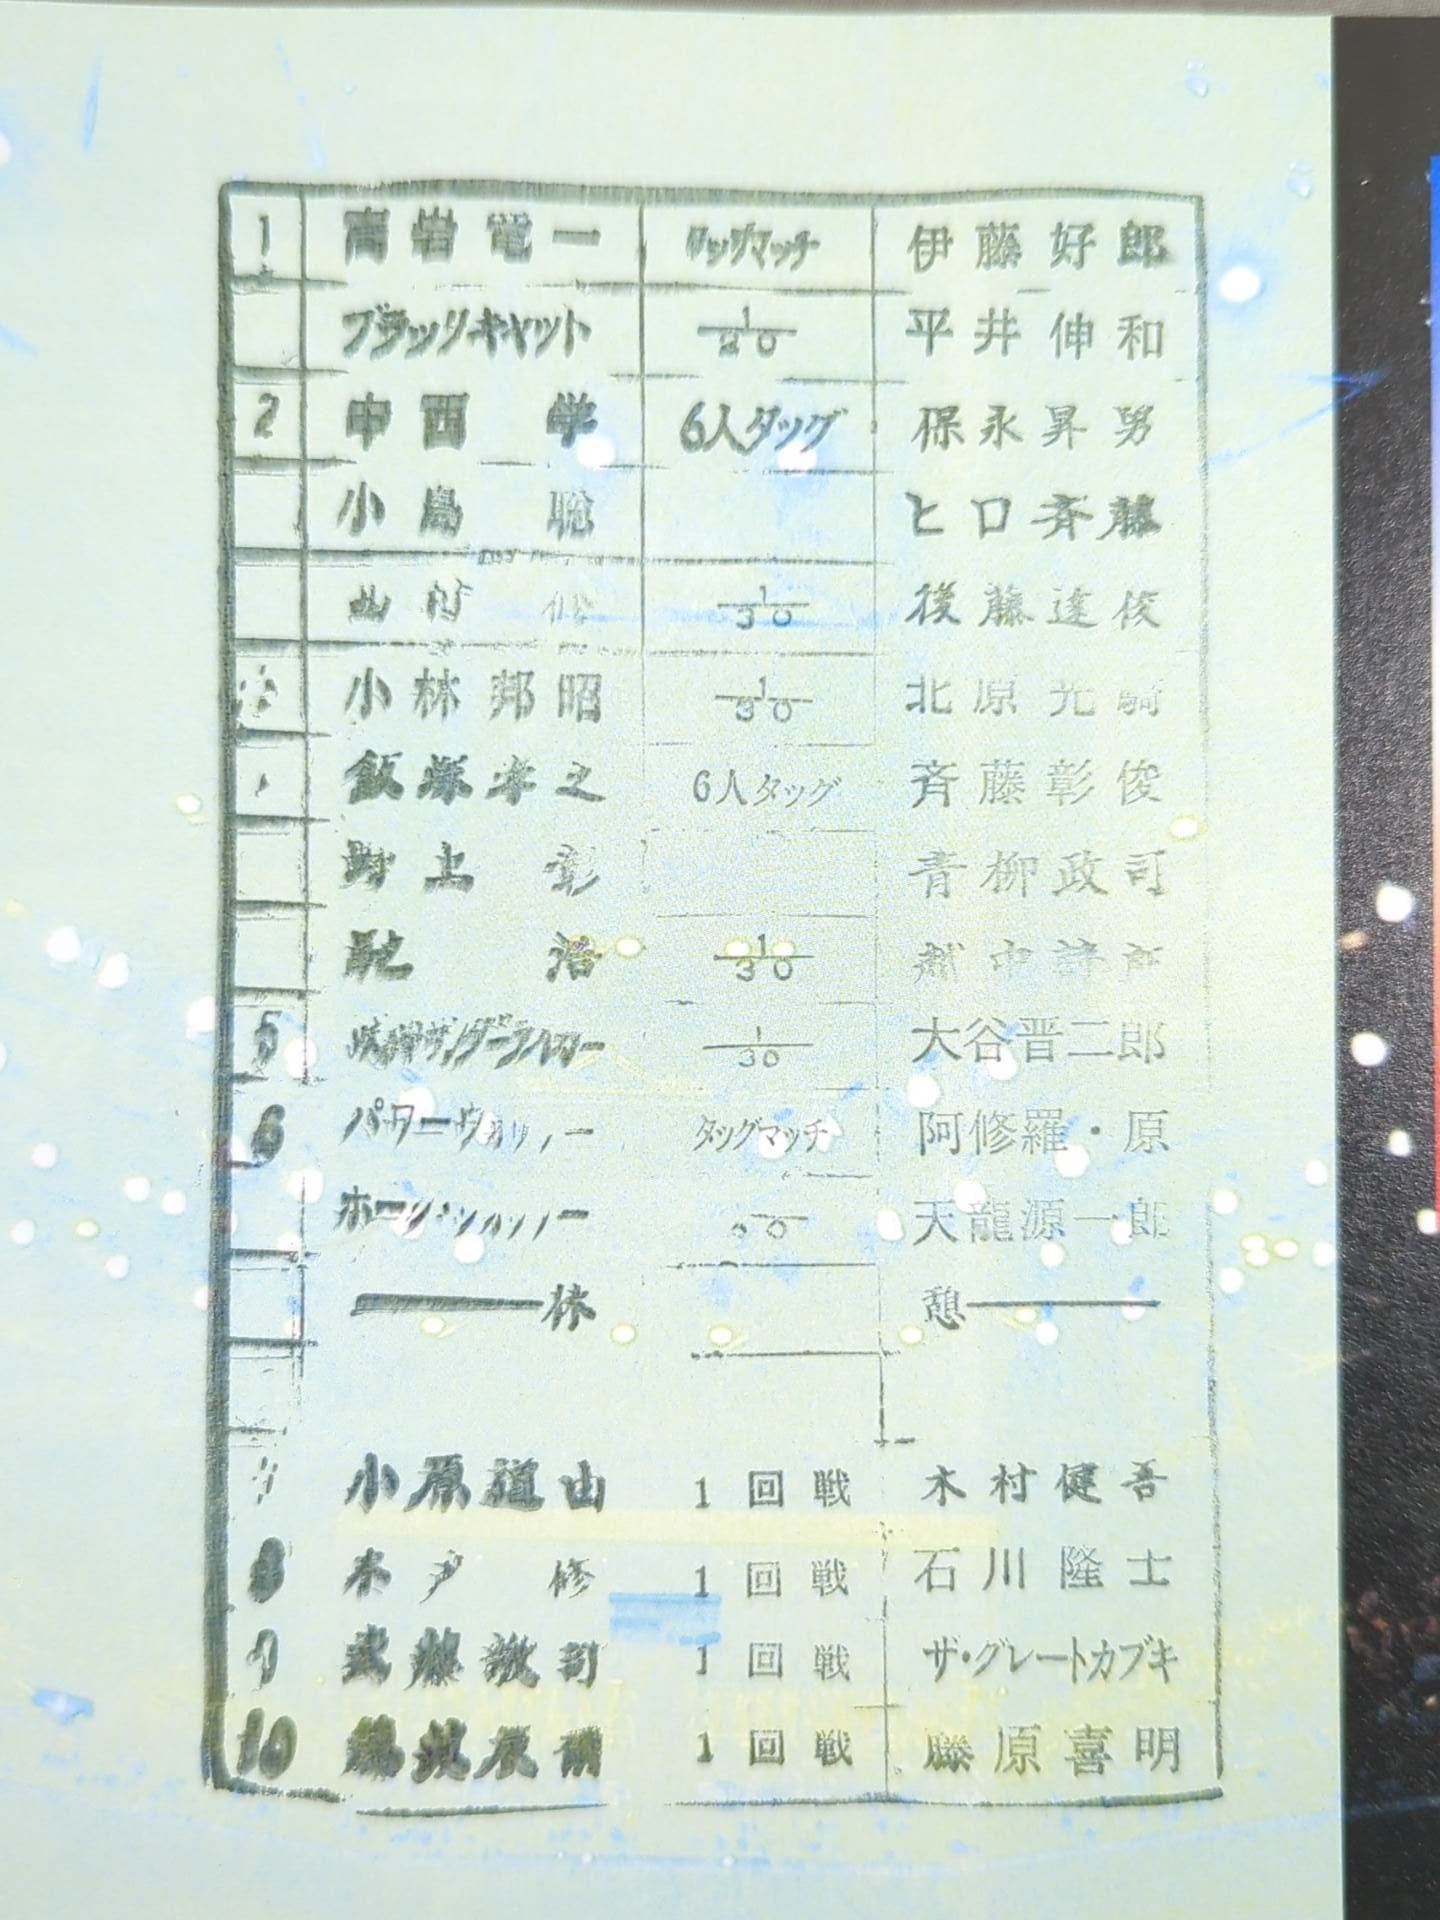 1 高岩竜一 タッグマッチ 伊藤好郎
ブラックキャット 1/20 平井伸和
2 中西学 6人タッグ 保永昇男
小島聡 ヒロ斉藤
1/30 後藤達俊
小林邦昭 1/30 北原光騎
飯塚孝之 6人タッグ 斉藤彰俊
野上彰 青柳政司
浩 1/30 越中詩郎
5 1/30 大谷晋二郎
6 タッグマッチ 阿修羅・原
天龍源一郎
休憩
小原道山 1回戦 木村健吾
8 木戸修 1回戦 石川隆士
9 武藤敬司 1回戦 ザ・グレートカブキ
10 1回戦 藤原喜明